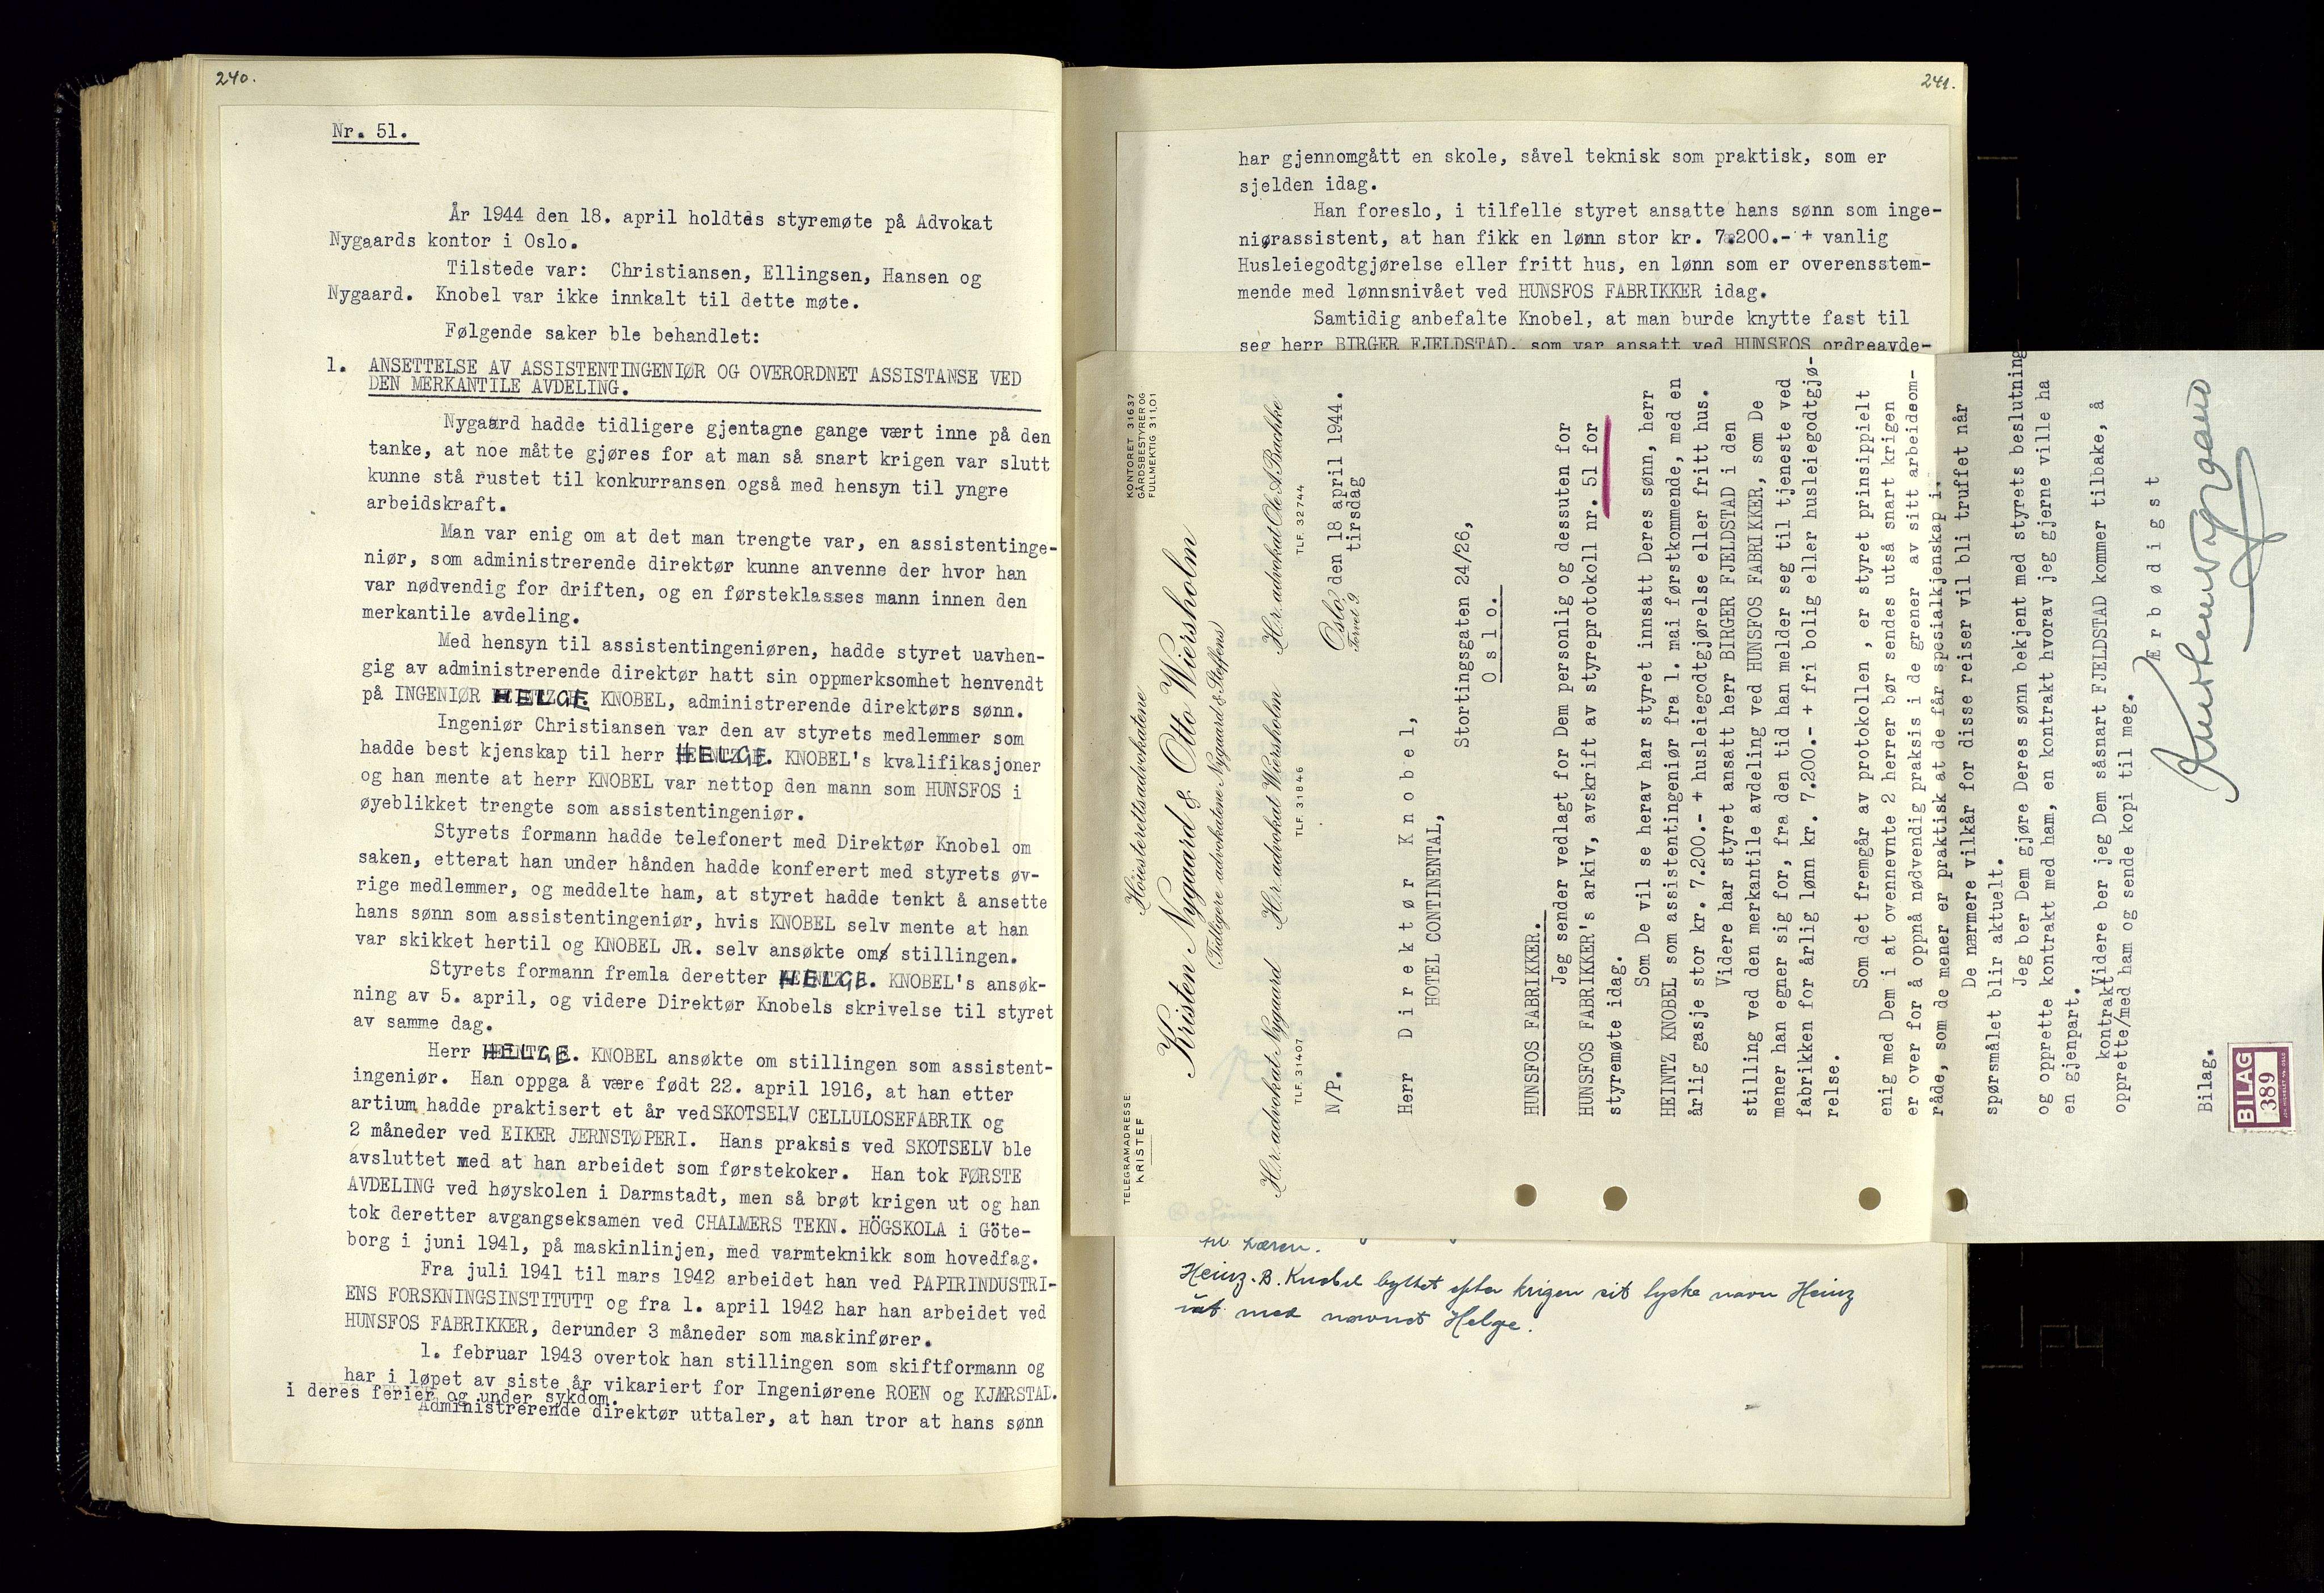 240.
Nr. 51.
År 1944 den 18. april holdtes styremøte på Advokat
Nygaards kontor i Oslo.
Tilstede var: Christiansen, Ellingsen, Hansen og
Nygaard. Knobel var ikke innkalt til dette møte.
Følgende saker ble behandlet:
1. ANSETTELSE AV ASSISTENTINGENIØR OG OVERORDNET ASSISTANSE VED
DEN MERKANTILE AVDELING.
Nygaard hadde tidligere gjentagne gange vært inne på den
tanke, at noe måtte gjøres for at man så snart krigen var slutt
kunne stå rustet til konkurransen også med hensyn til yngre
arbeidskraft.
Man var enig om at det man trengte var, en assistentinge-
niør, som administrerende direktør kunne anvenne der hvor han
var nødvendig for driften, og en førsteklasses mann innen den
merkantile avdeling.
Med hensyn til assistentingeniøren, hadde styret uavhen-
gig av administrerende direktør hatt sin oppmerksomhet henvendt
på INGENIØR HELGE KNOBEL, administrerende direktørs sønn.
Ingeniør Christiansen var den av styrets medlemmer som
hadde best kjenskap til herr HELGE. KNOBEL's kvalifikasjoner
og han mente at herr KNOBEL var nettop den mann som HUNSFOS i
øyeblikket trengte som assistentingeniør.
Styrets formann hadde telefonert med Direktør Knobel om
saken, etterat han under hånden hadde konferert med styrets øv-
rige medlemmer, og meddelte ham, at styret hadde tenkt å ansette
hans sønn som assistentingeniør, hvis KNOBEL selv mente at han
var skikket hertil og KNOBEL JR. selv ansøkte om stillingen.
Styrets formann fremla deretter HELGE. KNOBEL's ansøk-
ning av 5. april, og videre Direktør Knobels skrivelse til styret
av samme dag.
Herr HELGE. KNOBEL ansøkte om stillingen som assistent-
ingeniør. Han oppga å være født 22. april 1916, at han etter
artium hadde praktisert et år ved SKOTSELV CELLULOSEFABRIK og
2 måneder ved EIKER JERNSTØPERI. Hans praksis ved SKOTSELV ble
avsluttet med at han arbeidet som førstekoker. Han tok FØRSTE
AVDELING ved høyskolen i Darmstadt, men så brøt krigen ut og han
tok deretter avgangseksamen ved CHALMERS TEKN. HÖGSKOLA i Göte-
borg i juni 1941, på maskinlinjen, med varmteknikk som hovedfag.
Fra juli 1941 til mars 1942 arbeidet han ved PAPIRINDUSTRI-
ENS FORSKNINGSINSTITUTT og fra 1. april 1942 har han arbeidet ved
HUNSFOS FABRIKKER, derunder 3 måneder som maskinfører.
1. februar 1943 overtok han stillingen som skiftformann og
har i løpet av siste år vikariert for Ingeniørene ROEN og KJÆRSTAD.
i deres ferier og under sykdom.
Administrerende direktør uttaler, at han tror at hans sønn
241.
har gjennomgått en skole, såvel teknisk som praktisk, som er
sjelden idag.
Han foreslo, i tilfelle styret ansatte hans sønn som inge-
niørassistent, at han fikk en lønn stor kr. 7.200.- + vanlig
Husleiegodtgjørelse eller fritt hus, en lønn som er overensstem-
mende med lønnsnivået ved HUNSFOS FABRIKKER idag.
Samtidig anbefalte Knobel, at man burde knytte fast til
seg herr BIRGER FJELDSTAD, som var ansatt ved HUNSFOS ordreavde-
TELEGRAMADRESSE:
KRISTEF
Høiesterettsadvokatene
KONTORET 31637
GÅRDSBESTYRER OG
FULLMEKTIG 31101
Kristen Nygaard & Otto Wiersholm
(Tidligere advokatene Nygaard & Steffens)
H.r.advokat Nygaard H.r.advokat Wiersholm H.r.advokat Ole A. Bachke
TLF. 31407 TLF. 31846 TLF. 32744
N/P.
Oslo, den 18 april 1944.
Torvet 9.
tirsdag
Herr Direktør Knobel,
HOTEL CONTINENTAL,
Stortingsgaten 24/26,
Oslo.
HUNSFOS FABRIKKER.
Jeg sender vedlagt for Dem personlig og dessuten for
HUNSFOS FABRIKKER's arkiv, avskrift av styreprotokoll nr. 51 for
styremøte idag.
Som De vil se herav har styret innsatt Deres sønn, herr
HEINTZ KNOBEL som assistentingeniør fra 1. mai førstkommende, med en
årlig gasje stor kr. 7.200.- + husleiegodtgjørelse eller fritt hus.
Videre har styret ansatt herr BIRGER FJELDSTAD i den
stilling ved den merkantile avdeling ved HUNSFOS FABRIKKER, som De
mener han egner sig for, fra den tid han melder seg til tjeneste ved
fabrikken for årlig lønn kr. 7.200.- + fri bolig eller husleiegodtgjø-
relse.
Som det fremgår av protokollen , er styret prinsippielt
enig med Dem i at ovennevnte 2 herrer bør sendes utså snart krigen
er over for å oppnå nødvendig praksis i de grener av sitt arbeidsom-
råde, som de mener er praktisk at de får spesialkjenskap i.
De nærmere vilkår for disse reiser vil bli truffet når
spørsmålet blir aktuelt.
Jeg ber Dem gjøre Deres sønn bekjent med styrets beslutning
og opprette kontrakt med ham, en kontrakt hvorav jeg gjerne ville ha
en gjenpart.
Videre ber jeg Dem såsnart FJELDSTAD kommer tilbake, å
kontrakt
opprette/med ham og sende kopi til meg.
Ærbødigst
Kristen Nygaard
Bilag.
BILAG
389
Heinz. B. Knobel byttet efter krigen sit tyske navn Heinz
ut med navnet Helge.